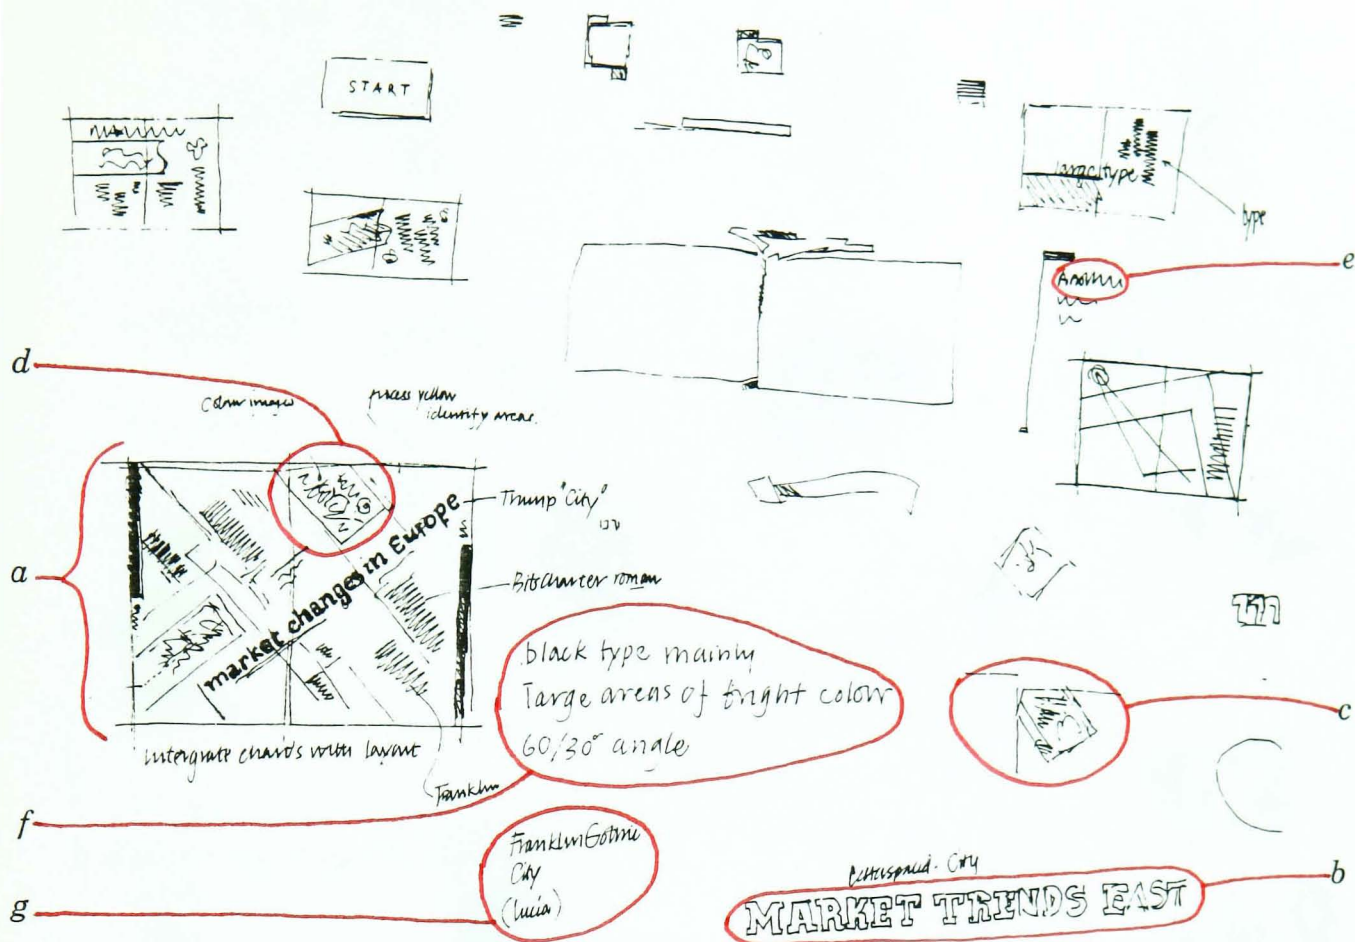 START
large type
type
e
d
Colour images
process yellow
identify areas.
market changes in Europe
Trump "City"
a
Bits Charter roman
black type mainly
Large areas of bright colour
60/30° angle
c
intergrate charts with layout
Franklin
f
Franklin Gothic
City
(Lucia)
Letterspaced - City
b
MARKET TRENDS EAST
g